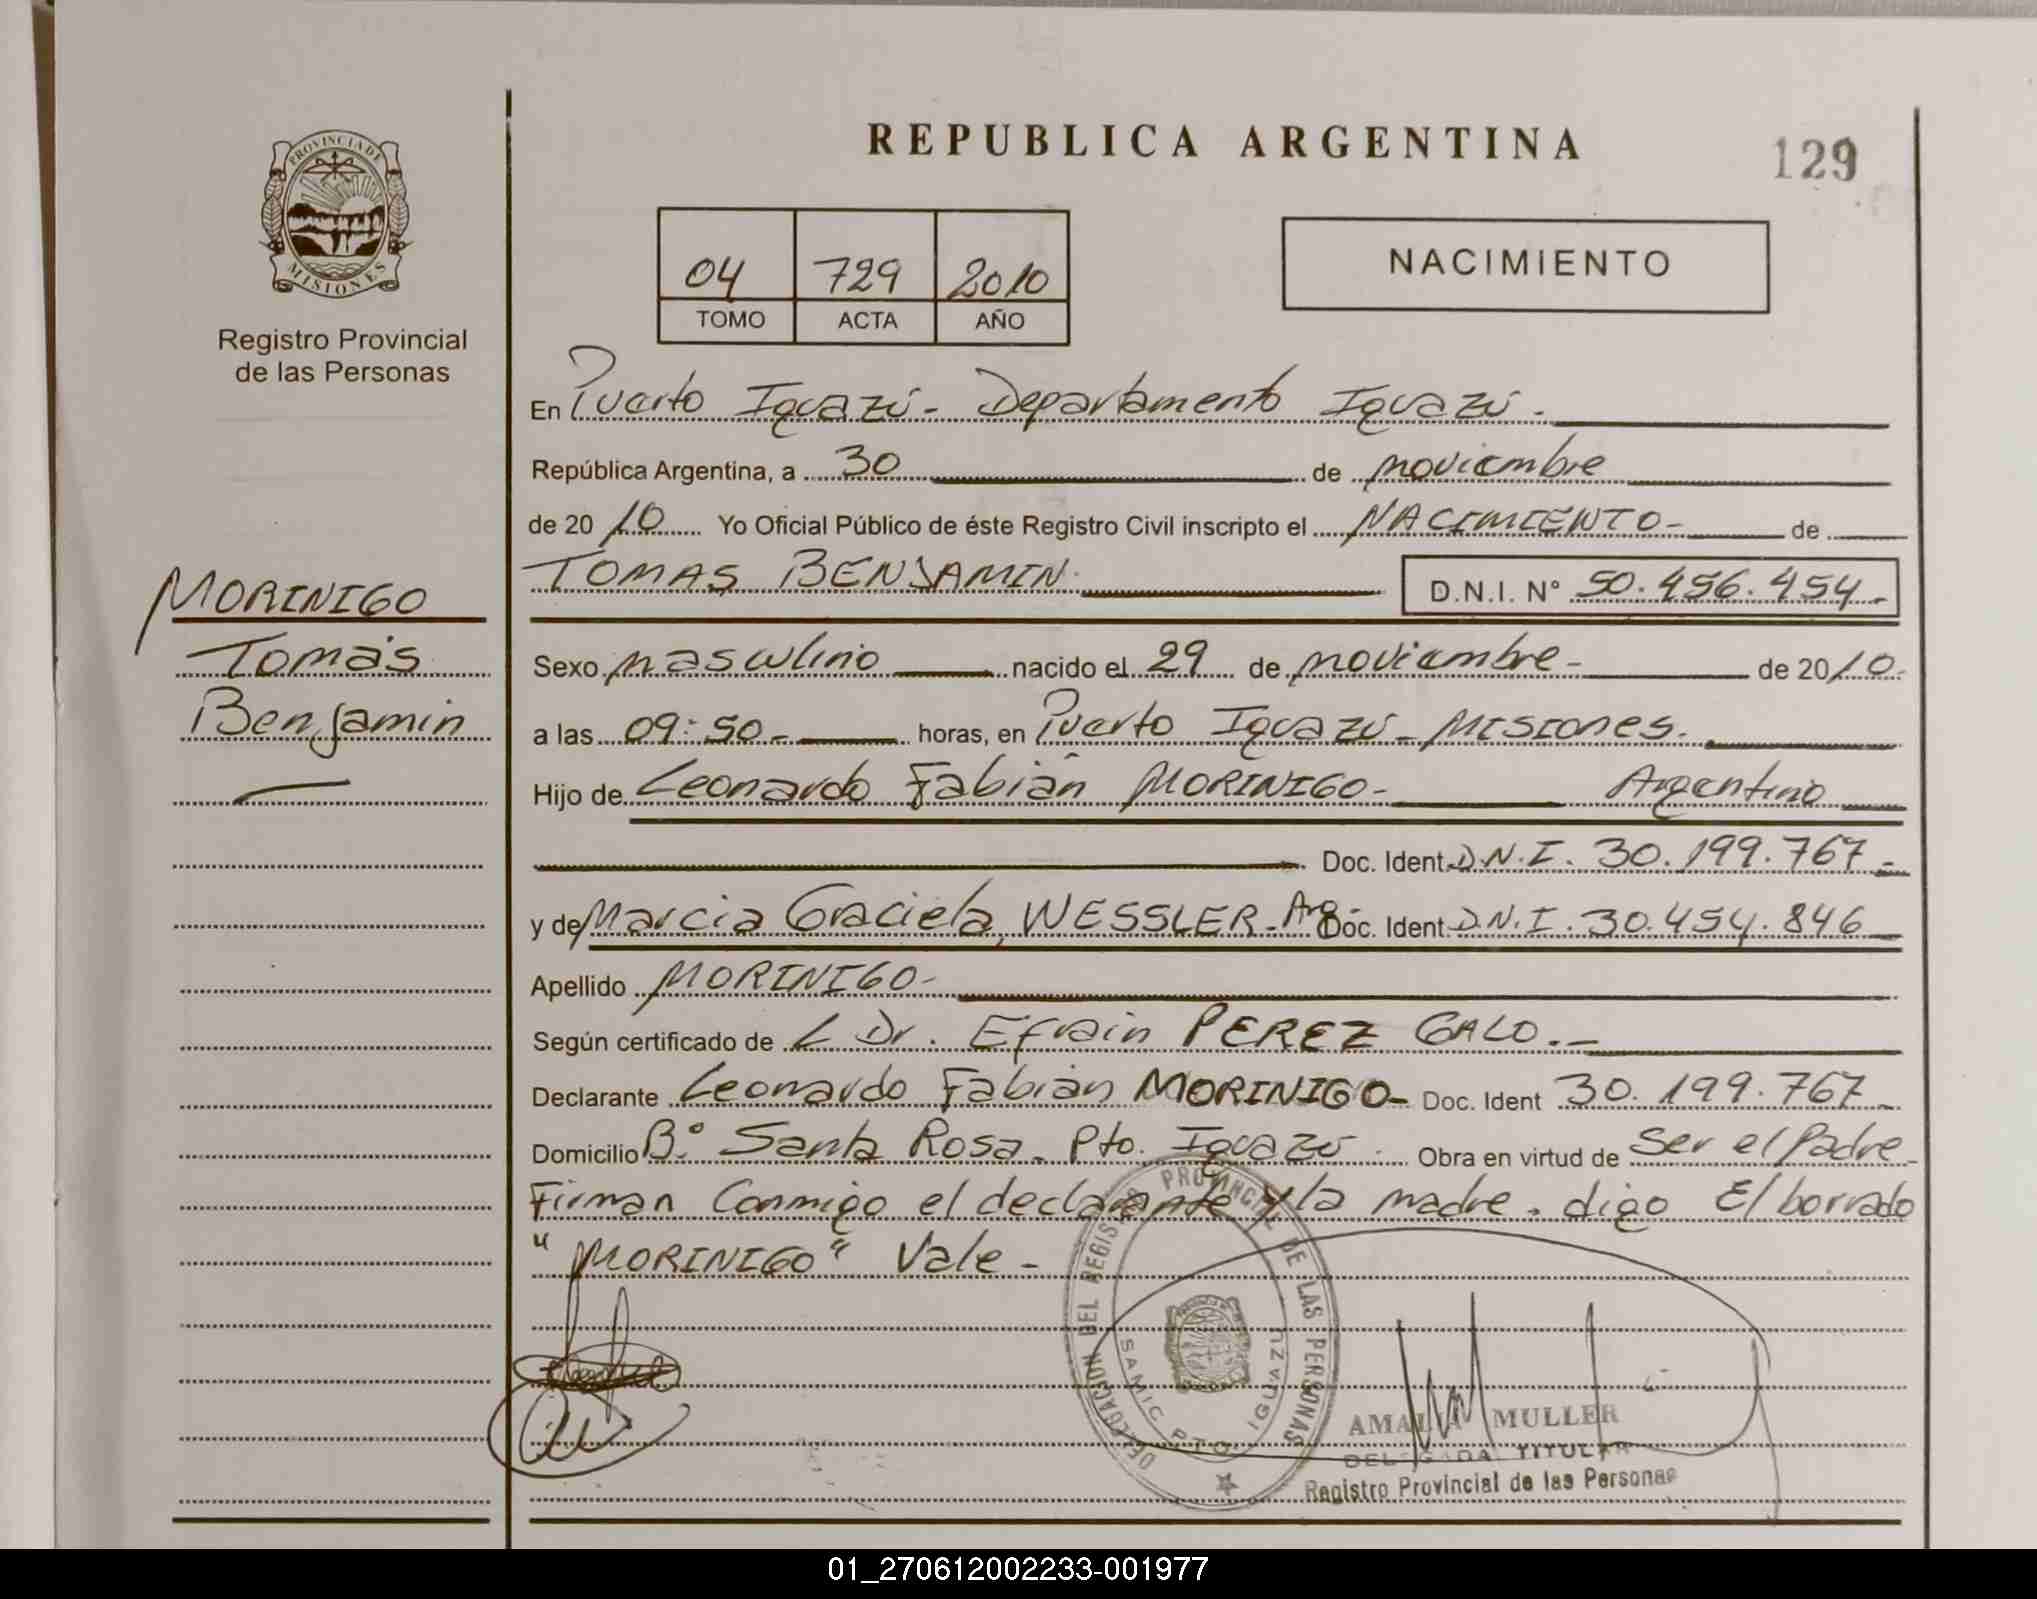 REPUBLICA ARGENTINA
129
PROVINCIA DE
MISIONES
Registro Provincial
de las Personas
04 729 2010
TOMO ACTA AÑO
NACIMIENTO
En Puerto Iguazú - Departamento Iguazú.
República Argentina, a 30 de noviembre
de 2010 Yo Oficial Público de éste Registro Civil inscripto el NACIMIENTO- de
TOMAS BENJAMIN. D.N.I. N° 50.456.454-
MORINIGO
Tomás
Benjamin
Sexo masculino nacido el 29 de noviembre- de 2010.
a las 09:50- horas, en Puerto Iguazú - MISIONES.
Hijo de Leonardo Fabián MORINIGO- Argentino
Doc. Ident. D.N.I. 30.199.767-
y de Marcia Graciela, WESSLER- Arg Doc. Ident. D.N.I. 30.454.846
Apellido MORINIGO-
Según certificado de L Dr. Efrain PEREZ GALO.-
Declarante Leonardo Fabián MORINIGO- Doc. Ident 30.199.767-
Domicilio B° Santa Rosa. Pto. Iguazú. Obra en virtud de ser el Padre-
Firman Conmigo el declarante y la madre. digo El borrado
"MORINIGO" Vale-
DELEGACION DEL REGISTRO PROVINCIAL DE LAS PERSONAS
SAMIC PTO. IGUAZU
MULLER
DELEGADA TITULAR
Registro Provincial de las Personas
01_270612002233-001977